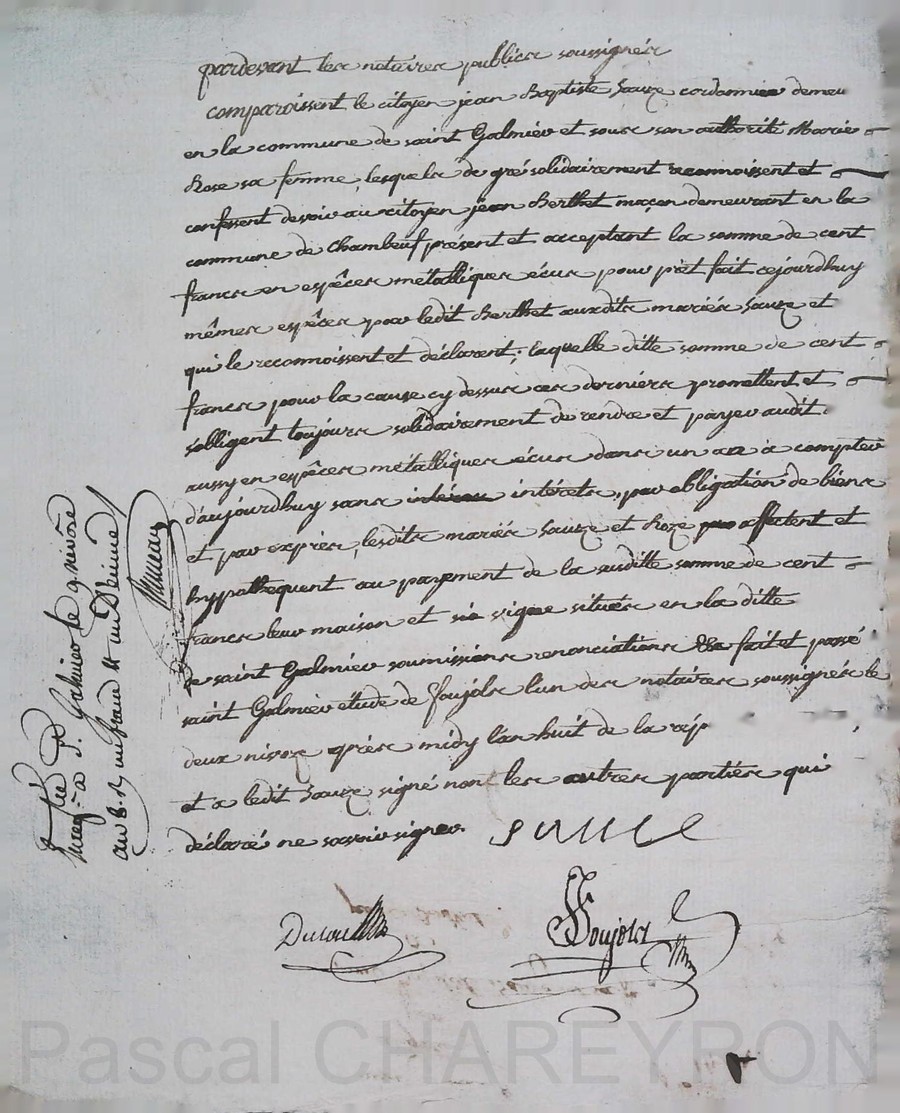 pardevant les notaires publics soussignés
comparoissent le citoyen jean Baptiste Sauze cordonnier demeu
en la commune de saint Galmier et sous son authorité Marie
Rose sa femme, lesquels de gré solidairement reconnoissent et
confessent devoir au citoyen jean Berthet maçon demeurant en la
commune de Chambeuf présent et acceptant la somme de cent
francs en espêces métalliques écus pour prêt fait cejourdhuy
mêmes espêces par ledit Berthet auxdits mariés Sauze et
qui le reconnoissent et déclarent; laquelle ditte somme de cent
francs pour la cause cy dessus ces derniers promettent et
sobligent toujours solidairement de rendre et payer audit
aussy en espêces métalliques écus dans un an à compter
d'aujourdhuy sans intérêts, par obligation de biens
et par exprès, lesdits mariés Sauze et Roze affectent et
hypothequent au payement de la susditte somme de cent
francs leur maison et vigne situés en la ditte
de saint Galmier soumissions renonciations fait et passé
saint Galmier étude de Foujols l'un des notaires soussignés le
deux nivose après midy lan huit de la rép
et a ledit Sauze signé non les autres parties qui
déclaré ne savoir signer. sauze
Foujols
Enreg.ᵗʳᵉ à S. Galmier le 9 nivôse
an 8. R un franc et un Décime